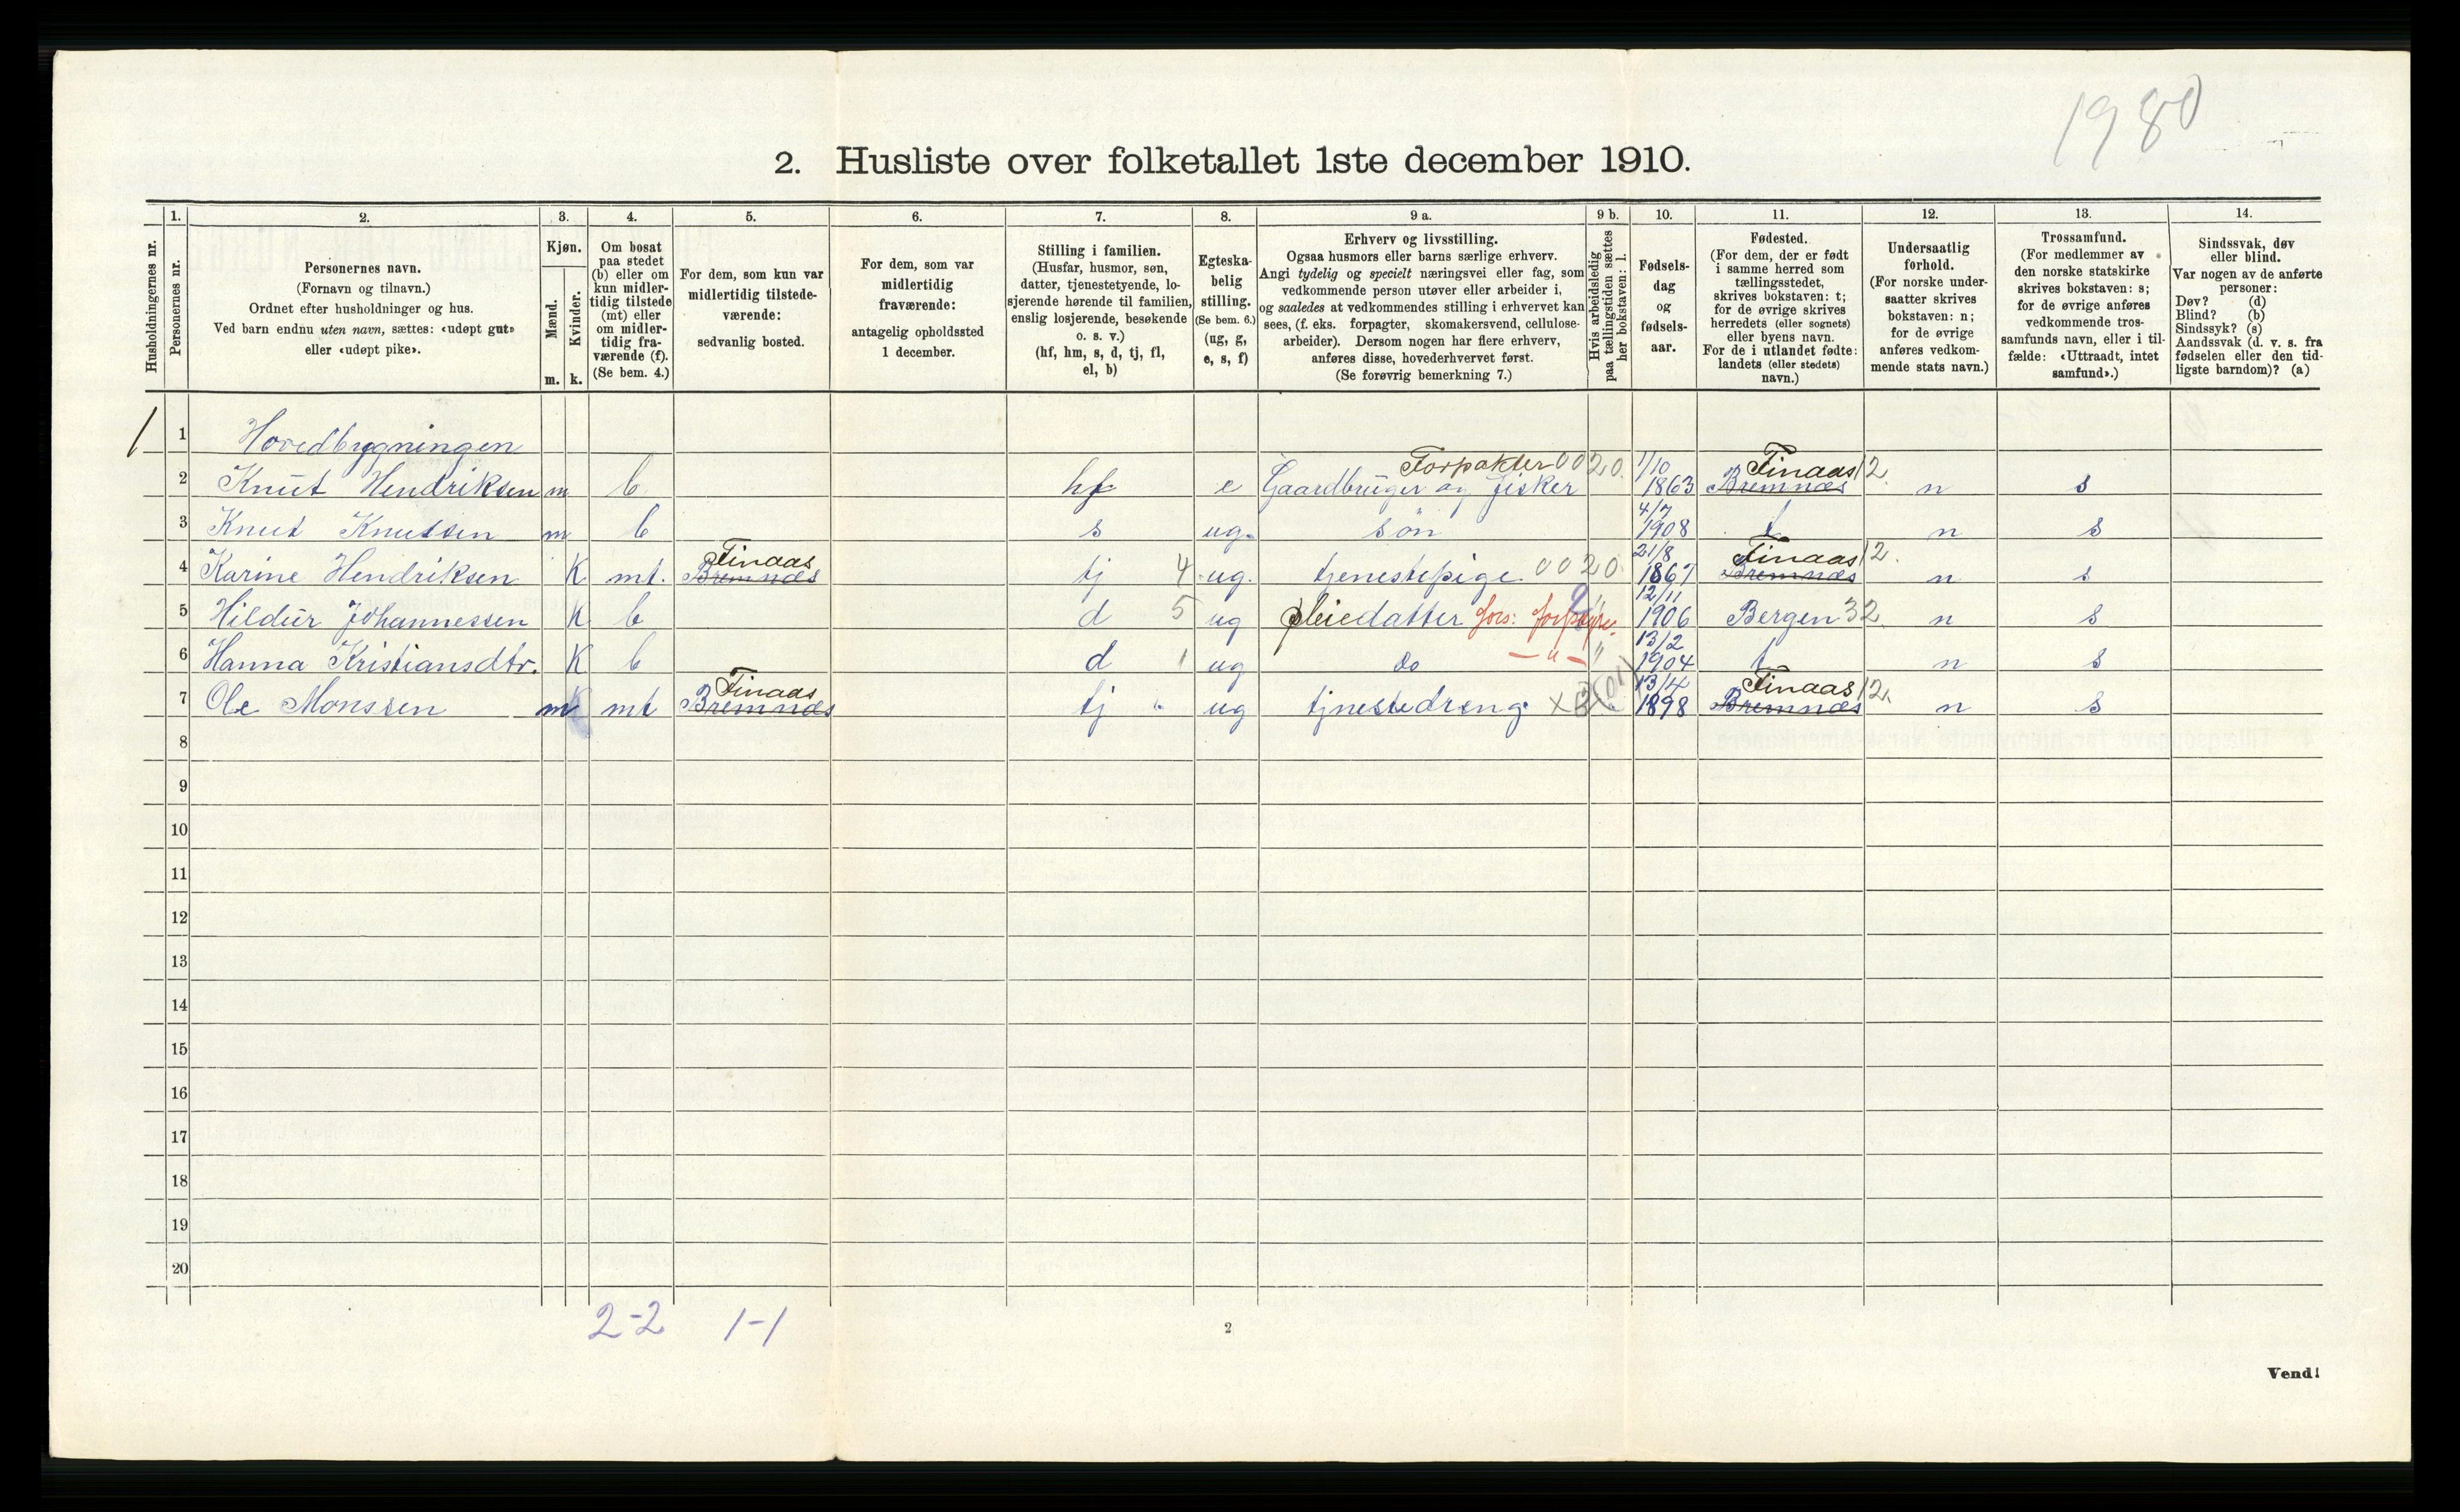 1980
2. Husliste over folketallet 1ste december 1910.
Husholdningernes nr.
1.
Personernes nr.
2.
Personernes navn.
(Fornavn og tilnavn.)
Ordnet efter husholdninger og hus.
Ved barn endnu uten navn, sættes: «udøpt gut»
eller «udøpt pike».
3.
Kjøn.
Mænd.
Kvinder.
m. k.
4.
Om bosat
paa stedet
(b) eller om
kun midler-
tidig tilstede
(mt) eller
om midler-
tidig fra-
værende (f).
(Se bem. 4.)
5.
For dem, som kun var
midlertidig tilstede-
værende:
sedvanlig bosted.
6.
For dem, som var
midlertidig
fraværende:
antagelig opholdssted
1 december.
7.
Stilling i familien.
(Husfar, husmor, søn,
datter, tjenestetyende, lo-
sjerende hørende til familien,
enslig losjerende, besøkende
o. s. v.)
(hf, hm, s, d, tj, fl,
el, b)
8.
Egteska-
belig
stilling.
(Se bem. 6.)
(ug, g,
e, s, f)
9 a.
Erhverv og livsstilling.
Ogsaa husmors eller barns særlige erhverv.
Angi tydelig og specielt næringsvei eller fag, som
vedkommende person utøver eller arbeider i,
og saaledes at vedkommendes stilling i erhvervet kan
sees, (f. eks. forpagter, skomakersvend, cellulose-
arbeider). Dersom nogen har flere erhverv,
anføres disse, hovederhvervet først.
(Se forøvrig bemerkning 7.)
9 b.
Hvis arbeidsledig
paa tællingstiden sættes
her bokstaven: l.
10.
Fødsels-
dag
og
fødsels-
aar.
11.
Fødested.
(For dem, der er født
i samme herred som
tællingsstedet,
skrives bokstaven: t;
for de øvrige skrives
herredets (eller sognets)
eller byens navn.
For de i utlandet fødte:
landets (eller stedets)
navn.)
12.
Undersaatlig
forhold.
(For norske under-
saatter skrives
bokstaven: n;
for de øvrige
anføres vedkom-
mende stats navn.)
13.
Trossamfund.
(For medlemmer av
den norske statskirke
skrives bokstaven: s;
for de øvrige anføres
vedkommende tros-
samfunds navn, eller i til-
fælde: «Uttraadt, intet
samfund».)
14.
Sindssvak, døv
eller blind.
Var nogen av de anførte
personer:
Døv? (d)
Blind? (b)
Sindssyk? (s)
Aandssvak (d. v. s. fra
fødselen eller den tid-
ligste barndom)? (a)
1 1 Hovedbygningen
Forpakter 0020. 1/10 Finaas 12.
2 Knut Hendriksen m b hf e Gaardbruger og fisker 1863 Bremnæs n s
4/7
3 Knut Knutsen m b s ug. søn 1908 t n s
Finaas 21/8 Finaas 12.
4 Karine Hendriksen K mt. Bremnæs tj 4 ug. tjenestepige 0020. 1867 Bremnæs n s
12/11
5 Hildur Johannessen K b d 5 ug pleiedatter fors: 1906 Bergen 32. n s
13/2
6 Hanna Kristiansdtr. K b d 1 ug do — " — " 1904 t n s
Finaas 13/4 Finaas 12.
7 Ole Monssen m mt Bremnæs tj ug tjnestedreng 1898 Bremnæs n s
8
9
10
11
12
13
14
15
16
17
18
19
20
2-2 1-1
2
Vend!